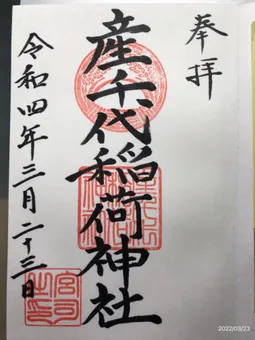 奉拝
産千代稲荷神社
令和四年三月二十三日
宮司之印
2022/03/23